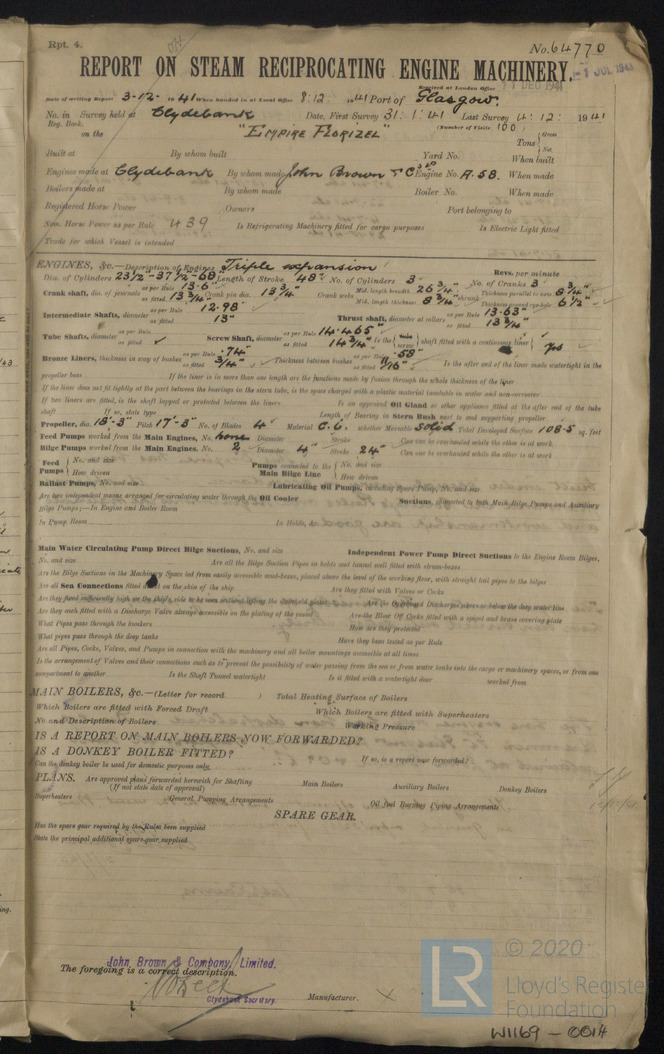 Rpt. 4.
No. 64770
REPORT ON STEAM RECIPROCATING ENGINE MACHINERY.
Received at London Office
Date of writing Report 3-12- 1941 When handed in at Local Office 8:12: 1941 Port of Glasgow.
No. in Survey held at Clydebank Date, First Survey 31:1:41 Last Survey 4:12: 1941
Reg. Book. (Number of Visits 100)
on the "EMPIRE FLORIZEL" Tons Gross
Net
Built at By whom built Yard No. When built
Engines made at Clydebank By whom made John Brown & Co Engine No. A.58. When made
Boilers made at By whom made Boiler No. When made
Registered Horse Power Owners Port belonging to
Nom. Horse Power as per Rule 439 Is Refrigerating Machinery fitted for cargo purposes Is Electric Light fitted
Trade for which Vessel is intended
ENGINES, &c.—Description of Engines Triple expansion Revs. per minute
Dia. of Cylinders 23½-37½-68 Length of Stroke 48" No. of Cylinders 3 No. of Cranks 3
Crank shaft, dia. of journals as per Rule 13.6" as fitted 13¾" Crank pin dia. 13¾" Crank webs Mid. length breadth 26¾" Mid. length thickness 8¾" shrunk Thickness parallel to axis 8¾" Thickness around eye-hole 6½"
Intermediate Shafts, diameter as per Rule 12.98" as fitted 13" Thrust shaft, diameter at collars as per Rule 13.63" as fitted 13¾"
Tube Shafts, diameter as per Rule as fitted Screw Shaft, diameter as per Rule 14.465" as fitted 14¾" Is the screw shaft fitted with a continuous liner Yes
Bronze Liners, thickness in way of bushes as per Rule .74" as fitted ¾" Thickness between bushes as per Rule .58" as fitted 11/16" Is the after end of the liner made watertight in the
propeller boss If the liner is in more than one length are the junctions made by fusion through the whole thickness of the liner
If the liner does not fit tightly at the part between the bearings in the stern tube, is the space charged with a plastic material insoluble in water and non-corrosive
If two liners are fitted, is the shaft lapped or protected between the liners Is an approved Oil Gland or other appliance fitted at the after end of the tube
shaft If so, state type Length of Bearing in Stern Bush next to and supporting propeller
Propeller, dia. 18'-3" Pitch 17'-3" No. of Blades 4 Material C.I. whether Moveable solid Total Developed Surface 108.5 sq. feet
Feed Pumps worked from the Main Engines, No. none Diameter Stroke Can one be overhauled while the other is at work
Bilge Pumps worked from the Main Engines, No. 2 Diameter 4" Stroke 24" Can one be overhauled while the other is at work
Feed Pumps No. and size How driven Pumps connected to the Main Bilge Line No. and size How driven
Ballast Pumps, No. and size Lubricating Oil Pumps, including Spare Pump, No. and size
Are two independent means arranged for circulating water through the Oil Cooler Suctions, connected to both Main Bilge Pumps and Auxiliary
Bilge Pumps;—In Engine and Boiler Room
In Pump Room In Holds, &c.
Main Water Circulating Pump Direct Bilge Suctions, No. and size Independent Power Pump Direct Suctions to the Engine Room Bilges,
No. and size Are all the Bilge Suction Pipes in holds and tunnel well fitted with strum-boxes
Are the Bilge Suctions in the Machinery Space led from easily accessible mud-boxes, placed above the level of the working floor, with straight tail pipes to the bilges
Are all Sea Connections fitted direct on the skin of the ship Are they fitted with Valves or Cocks
Are they fixed sufficiently high on the ship's side to be seen without lifting the stokehold plates Are the Overboard Discharges above or below the deep water line
Are they each fitted with a Discharge Valve always accessible on the plating of the vessel Are the Blow Off Cocks fitted with a spigot and brass covering plate
What Pipes pass through the bunkers How are they protected
What pipes pass through the deep tanks Have they been tested as per Rule
Are all Pipes, Cocks, Valves, and Pumps in connection with the machinery and all boiler mountings accessible at all times
Is the arrangement of Valves and their connections such as to prevent the possibility of water passing from the sea or from water tanks into the cargo or machinery spaces, or from one
compartment to another Is the Shaft Tunnel watertight Is it fitted with a watertight door worked from
MAIN BOILERS, &c.—(Letter for record ) Total Heating Surface of Boilers
Which Boilers are fitted with Forced Draft Which Boilers are fitted with Superheaters
No and Description of Boilers Working Pressure
IS A REPORT ON MAIN BOILERS NOW FORWARDED?
IS A DONKEY BOILER FITTED? If so, is a report now forwarded?
Can the donkey boiler be used for domestic purposes only
PLANS. Are approved plans forwarded herewith for Shafting Main Boilers Auxiliary Boilers Donkey Boilers
(If not state date of approval)
Superheaters General Pumping Arrangements Oil fuel Burning Piping Arrangements
SPARE GEAR.
Has the spare gear required by the Rules been supplied
State the principal additional spare gear supplied
John Brown & Company, Limited.
The foregoing is a correct description.
Clydebank Secretary.
Manufacturer.
LR
© 2020
Lloyd's Register
Foundation
W1169-0014